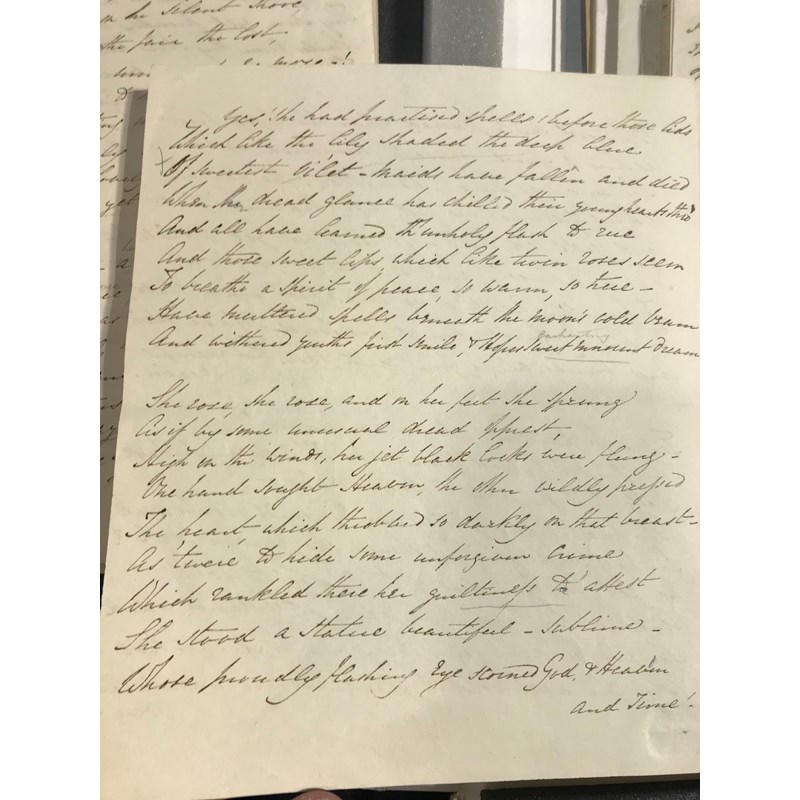 on the silent shore,
the fair the lost,
more - !
Yes! She had practised spells! before those lids
Which like the lily shaded the deep blue
Of sweetest vi'let - maids have fallen and died
When the dread glance has chilled their young hearts thro'
And all have learned th'unholy flash to rue
And those sweet lips, which like twin roses seem
To breathe a spirit of peace, so warm, so true -
Have muttered spells beneath the moon's cold beam
And withered youth's first smile, & Hopes sweet innocent dream
She rose, she rose, and on her feet she sprung
As if by some unusual dread opprest,
High on the winds, her jet black locks were flung -
One hand sought Heaven, the other wildly pressed
The heart, which throbbed so darkly on that breast -
As 'twere to hide some unforgiven crime
Which rankled there her guiltiness to attest
She stood a statue beautiful - sublime -
Whose proudly flashing eye scorned God, & Heav'n
and Time! -